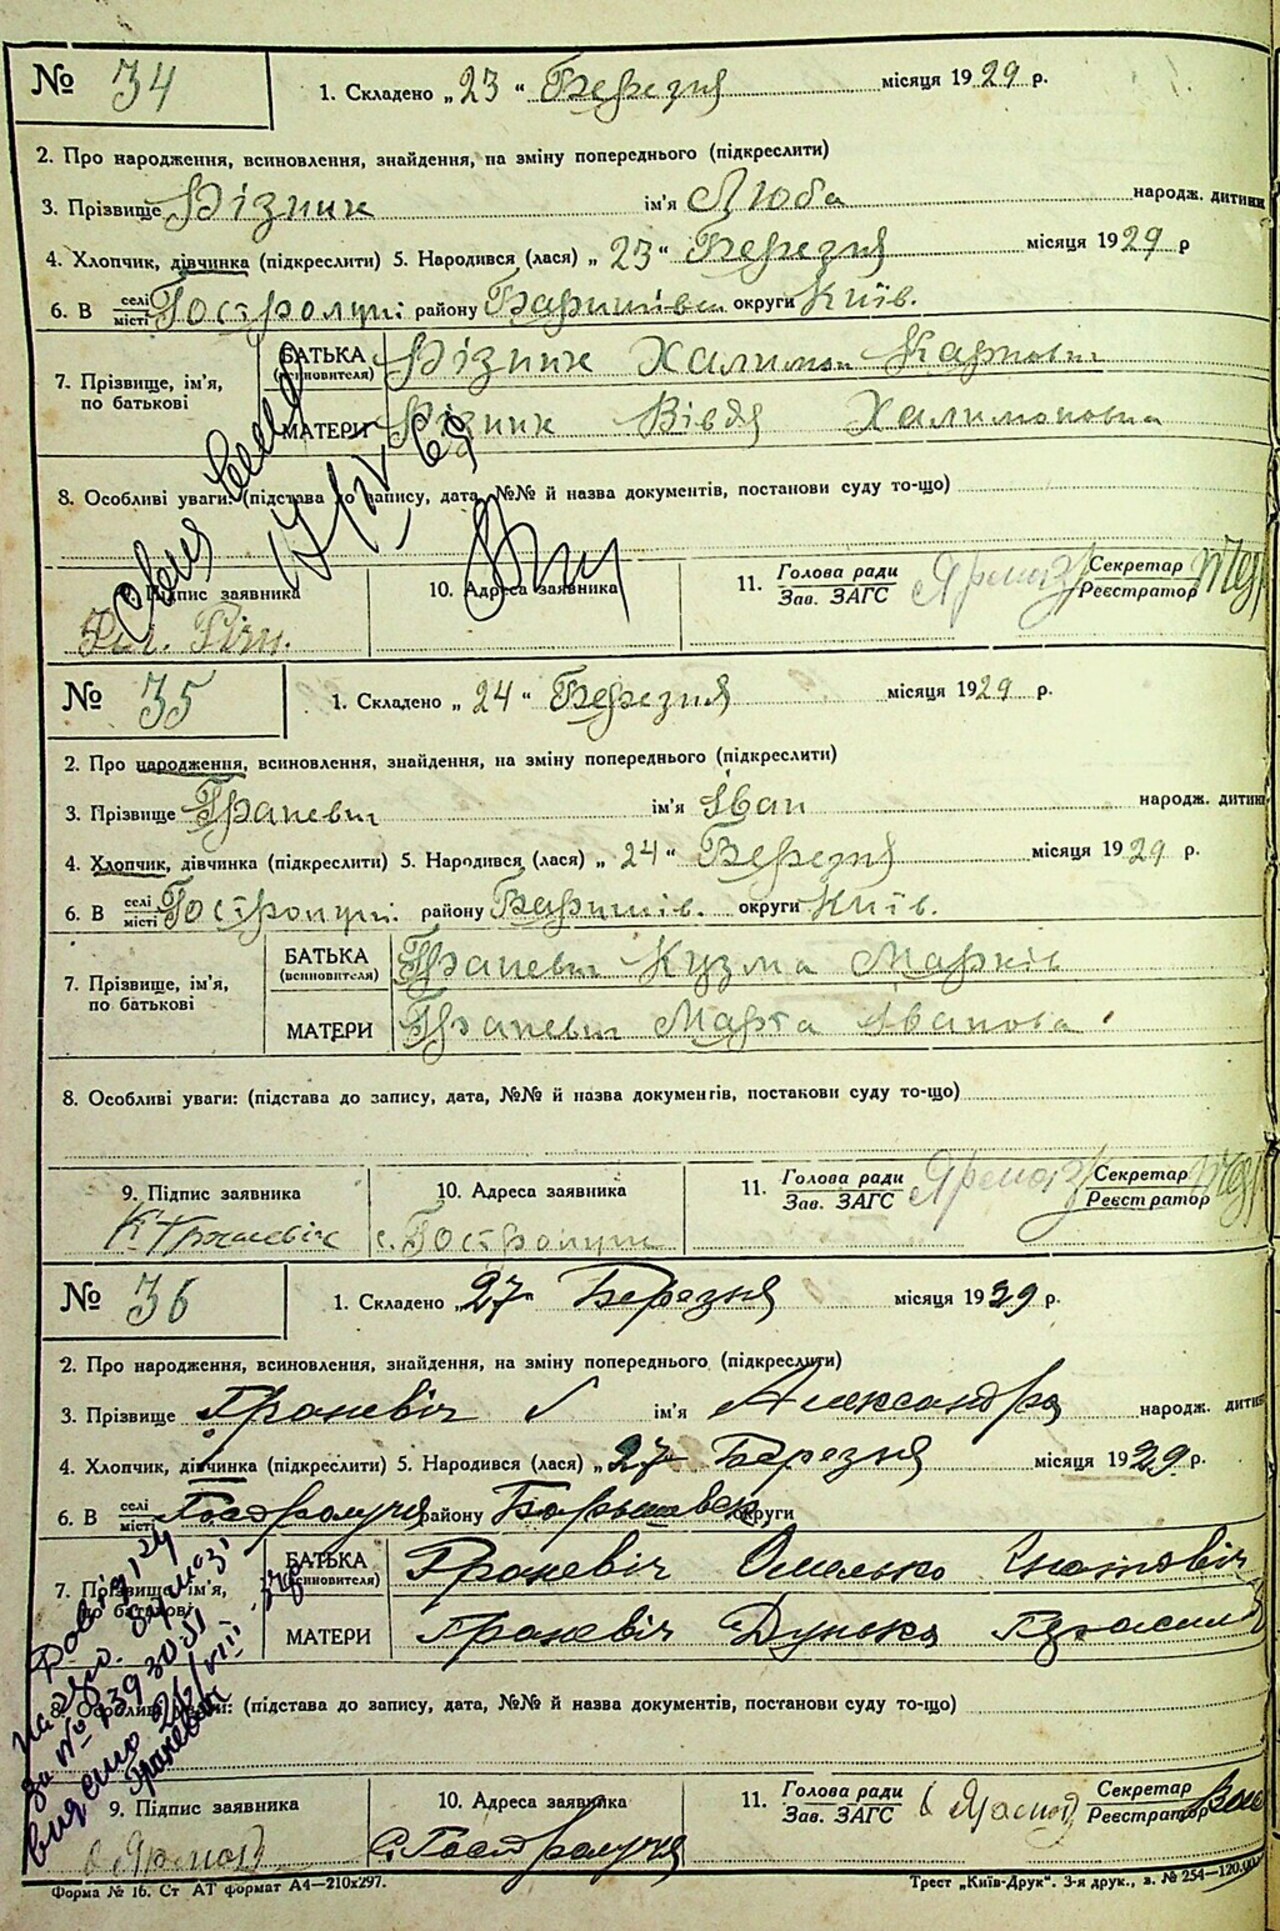 № 34
1. Складено „ 23 “ Березня місяця 1929 р.
2. Про народження, всиновлення, знайдення, на зміну попереднього (підкреслити)
3. Прізвище Різник ім'я Люба народж. дитини
4. Хлопчик, дівчинка (підкреслити) 5. Народився (лася) „ 23 “ Березня місяця 1929 р
6. В селі місті Гостролучі району Баришівськ округи Київ.
7. Прізвище, ім'я, по батькові
БАТЬКА (всиновителя) Різник Халимон Карпович
МАТЕРИ Різник Вівдя Халимоновна
8. Особливі уваги: (підстава до запису, дата, №№ й назва документів, постанови суду то-що)
9. Підпис заявника 10. Адреса заявника 11. Голова ради Зав. ЗАГС Секретар Реєстратор
№ 35
1. Складено „ 24 “ Березня місяця 1929 р.
2. Про народження, всиновлення, знайдення, на зміну попереднього (підкреслити)
3. Прізвище Граневич ім'я Іван народж. дитини
4. Хлопчик, дівчинка (підкреслити) 5. Народився (лася) „ 24 “ Березня місяця 1929 р.
6. В селі місті Гостролучі району Баришів. округи Київ.
7. Прізвище, ім'я, по батькові
БАТЬКА (всиновителя) Граневич Кузма Марків
МАТЕРИ Граневич Марта Іванова
8. Особливі уваги: (підстава до запису, дата, №№ й назва документів, постанови суду то-що)
9. Підпис заявника 10. Адреса заявника 11. Голова ради Зав. ЗАГС Секретар Реєстратор
К Граневіч с. Гостролучи
№ 36
1. Складено „ 27 “ Березня місяця 1929 р.
2. Про народження, всиновлення, знайдення, на зміну попереднього (підкреслити)
3. Прізвище Граневіч ім'я Александра народж. дитини
4. Хлопчик, дівчинка (підкреслити) 5. Народився (лася) „ 27 Березня місяця 1929 р.
6. В селі місті Гостролучя району округи
7. Прізвище, ім'я, по батькові
БАТЬКА (всиновителя) Граневіч Омелько Гнатовіч
МАТЕРИ Граневіч Дунька
8. Особливі уваги: (підстава до запису, дата, №№ й назва документів, постанови суду то-що)
9. Підпис заявника 10. Адреса заявника 11. Голова ради Зав. ЗАГС Секретар Реєстратор
С. Гостролучя
Форма № 16. Ст АТ формат А4—210х297. Трест „Київ-Друк“. 3-я друк., з. № 254—120.00